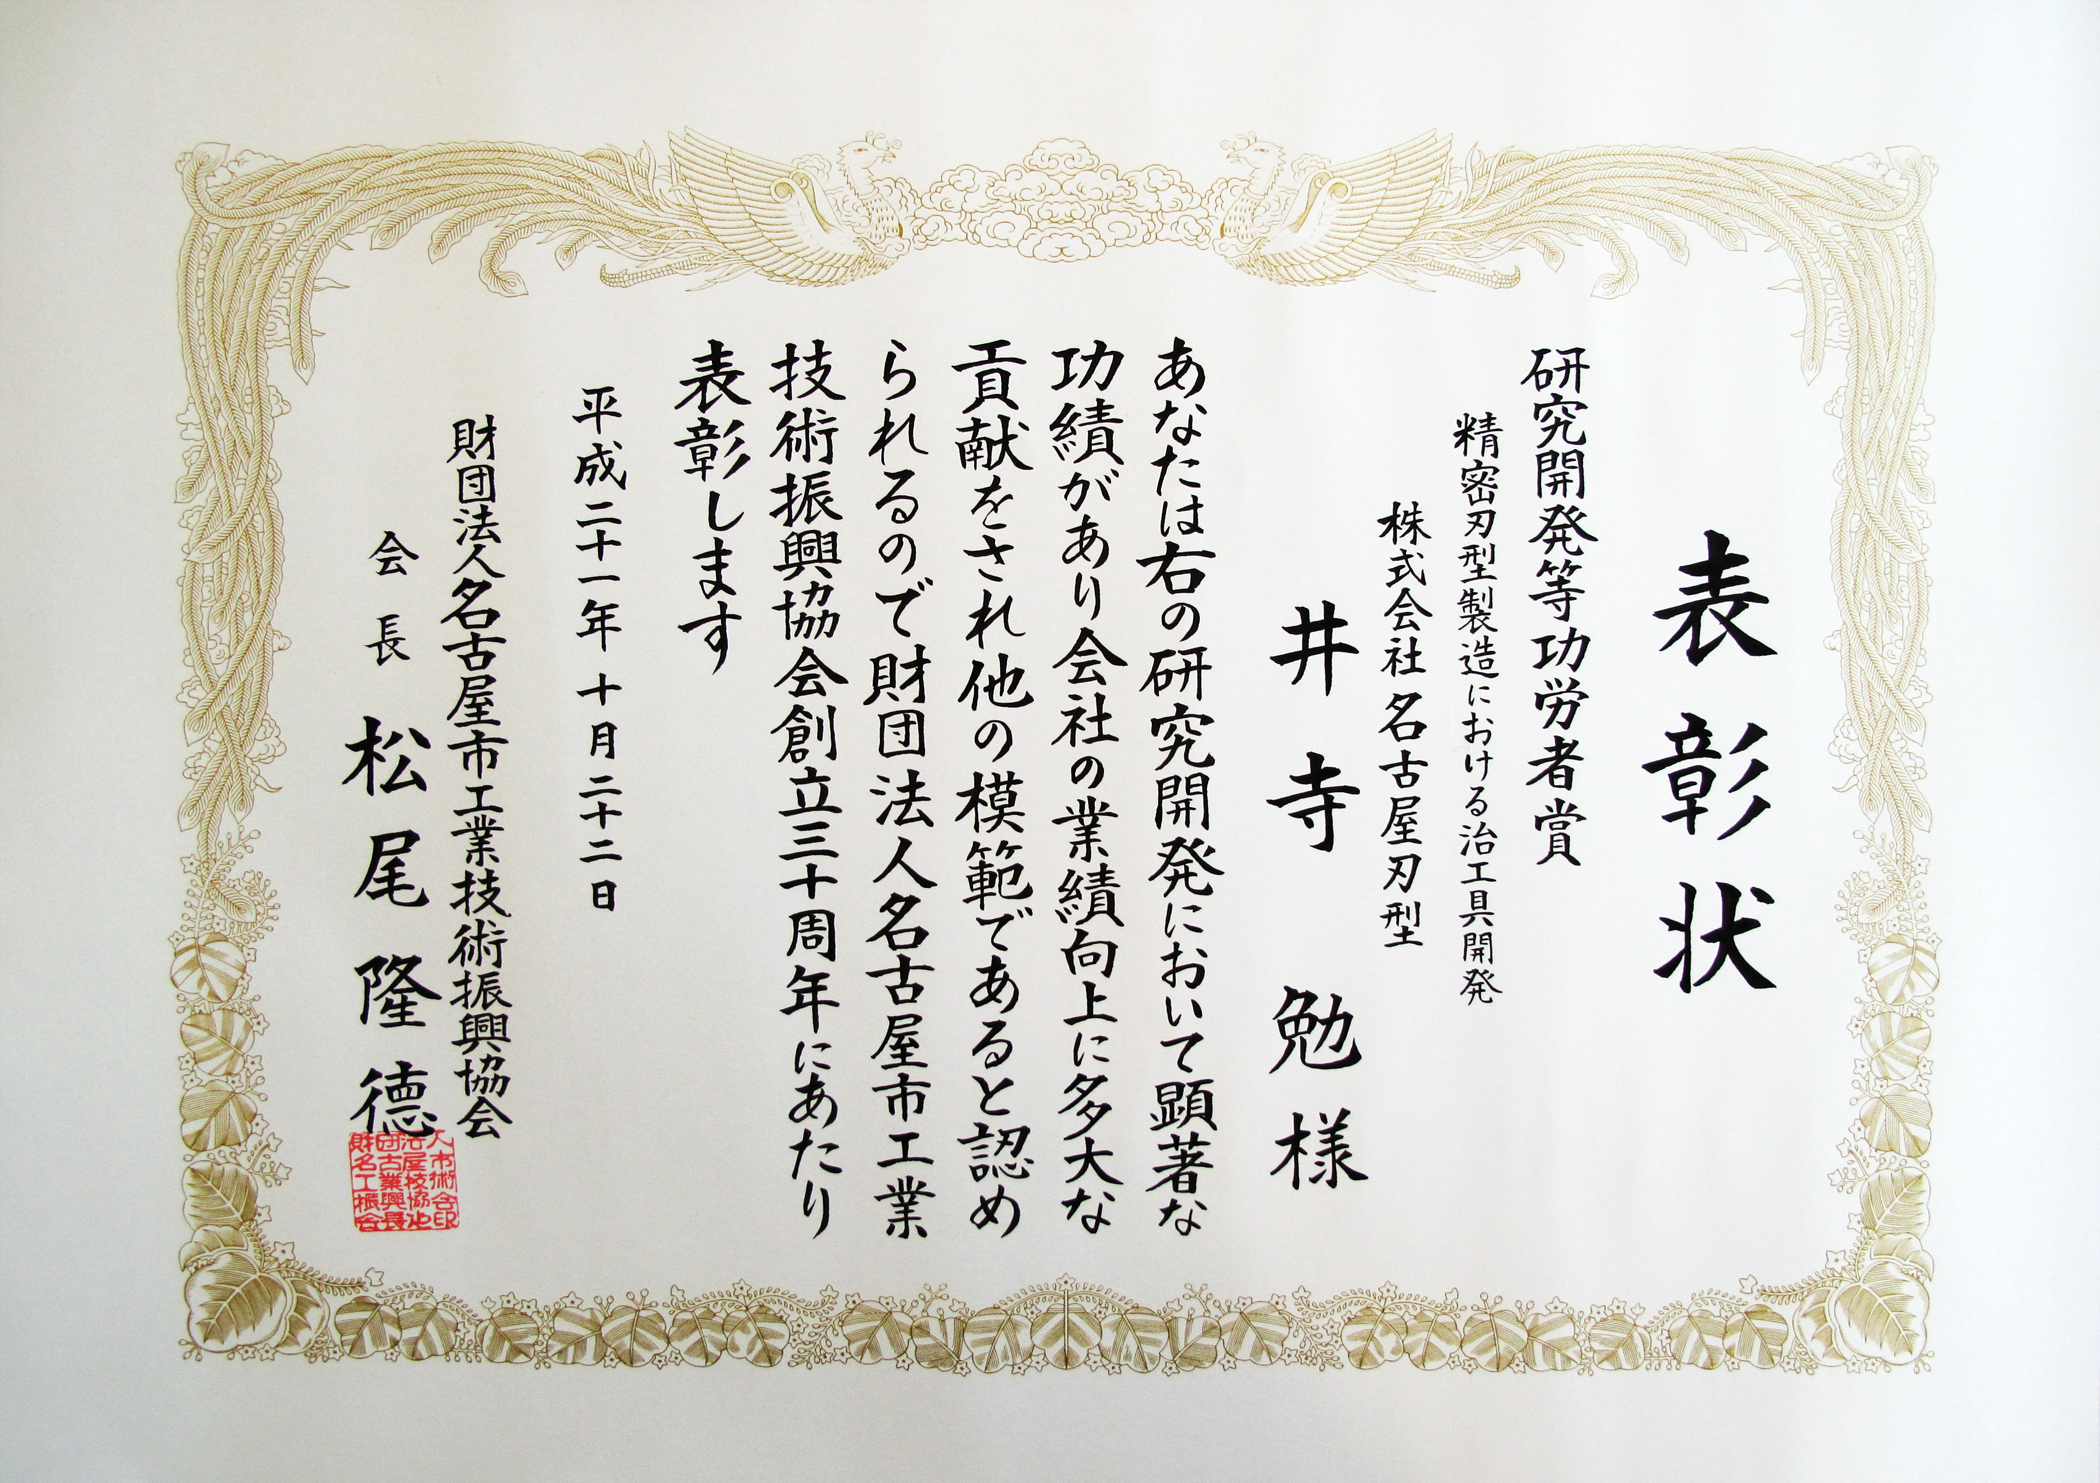 表彰状
研究開発等功労者賞
精密刃型製造における治工具開発
株式会社名古屋刃型
井寺勉様
あなたは右の研究開発において顕著な
功績があり会社の業績向上に多大な
貢献をされ他の模範であると認め
られるので財団法人名古屋市工業
技術振興協会創立三十周年にあたり
表彰します
平成二十一年十月二十二日
財団法人名古屋市工業技術振興協会
会長 松尾隆德